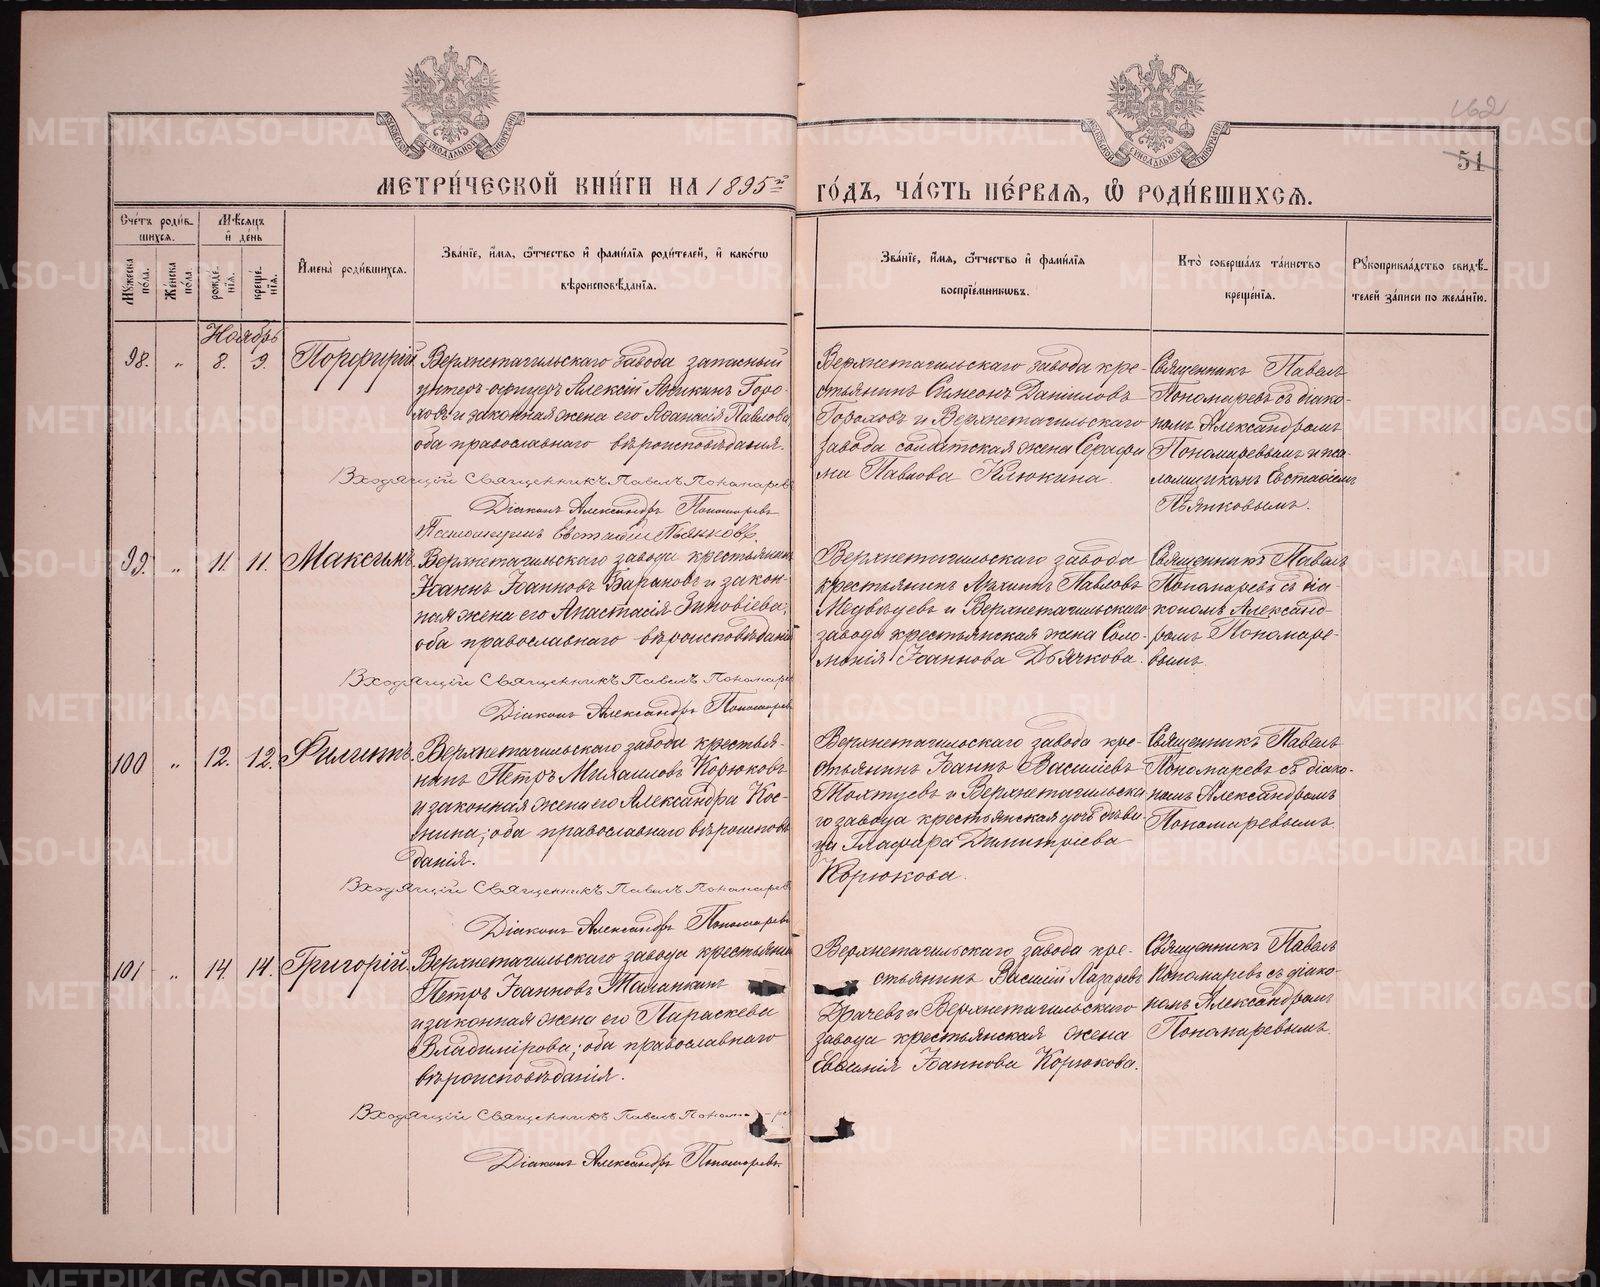 162
51
МЕТРИЧЕСКОЙ КНИГИ НА 1895й ГОДЪ, ЧАСТЬ ПЕРВАЯ, Ѡ РОДИВШИХСЯ.
Счетъ родившихся.
Мѣсяцъ и день
Мужеска пола.
Женска пола.
рожденія.
крещенія.
Имена родившихся.
Званіе, имя, отчество и фамилія родителей, и какого
вѣроисповѣданія.
Званіе, имя, отчество и фамилія
воспріемниковъ.
Кто совершалъ таинство
крещенія.
Рукоприкладство свидѣ-
телей записи по желанію.
Ноябрь
98. „ 8. 9. Порфирій
Верхнетагильскаго завода запасный
унтеръ-офицеръ Алексій Аникинъ Горо-
ховъ и законная жена его Аѳанасія Павлова,
оба православнаго вѣроисповѣданія.
Входящій Священникъ Павелъ Пономаревъ
Діаконъ Александръ Пономаревъ
Псаломщикъ Евстаѳій Пьянковъ.
Верхнетагильскаго завода кре-
стьянинъ Симеонъ Даніиловъ
Гороховъ и Верхнетагильскаго
завода солдатская жена Серафи
ма Павлова Клюкина.
Священникъ Павелъ
Пономаревъ съ діако-
номъ Александромъ
Пономаревымъ и пса-
ломщикомъ Евстаѳіемъ
Пьянковымъ.
99. „ 11. 11. Максимъ.
Верхнетагильскаго завода крестьянинъ
Іоаннъ Іоанновъ Барановъ и закон-
ная жена его Анастасія Зиновіева;
оба православнаго вѣроисповѣданія
Входящій Священникъ Павелъ Пономарев
Діаконъ Александръ Пономарев
Верхнетагильскаго завода
крестьянинъ Павловъ
Медвѣдевъ и Верхнетагильскаго
завода крестьянская жена Соло-
монія Іоаннова Дьячкова.
Священникъ Павелъ
Пономаревъ съ діа-
кономъ Александ-
ромъ Пономаре-
вымъ
100 „ 12. 12. Филиппъ.
Верхнетагильскаго завода крестья-
нинъ Петръ Михаиловъ Корюковъ
и законная жена его Александра Кос-
мина; оба православнаго вѣроисповѣ
данія.
Входящій Священникъ Павелъ Пономарев
Діаконъ Александръ Пономаревъ
Верхнетагильскаго завода кре-
стьянинъ Іоаннъ Василіевъ
Толстуевъ и Верхнетагильска
го завода крестьянская дочь дѣви
ца Глафира Димитріева
Корюкова.
Священникъ Павелъ
Пономаревъ съ діако-
номъ Александромъ
Пономаревымъ
101 „ 14 14. Григорій.
Верхнетагильскаго завода крестьянин
Петръ Іоанновъ Маланкинъ
и законная жена его Параскева
Владимірова; оба православнаго
вѣроисповѣданія.
Входящій Священникъ Павелъ Понома
Діаконъ Александръ Пономаревъ
Верхнетагильскаго завода кре-
стьянинъ Василій Лазаревъ
Драчевъ и Верхнетагильскаго
завода крестьянская жена
Евгенія Іоаннова Корюкова.
Священникъ Павелъ
Пономаревъ съ діако-
номъ Александромъ
Пономаревымъ
METRIKI.GASO-URAL.RU